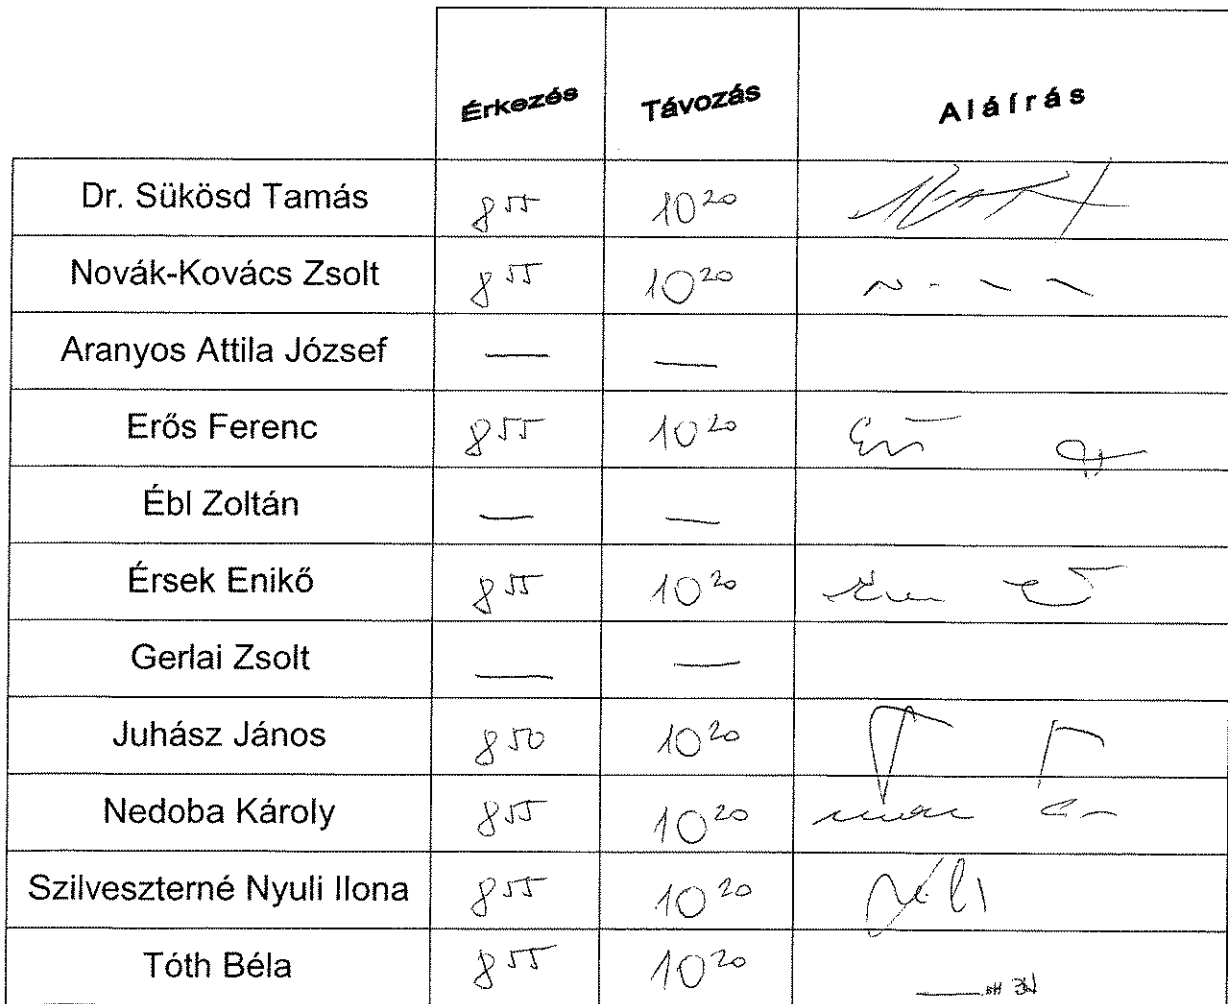 Érkezés Távozás Aláírás
Dr. Sükösd Tamás 8 55 10 20
Novák-Kovács Zsolt 8 55 10 20
Aranyos Attila József — —
Erős Ferenc 8 55 10 20
Ébl Zoltán — —
Érsek Enikő 8 55 10 20
Gerlai Zsolt — —
Juhász János 8 50 10 20
Nedoba Károly 8 55 10 20
Szilveszterné Nyuli Ilona 8 55 10 20
Tóth Béla 8 55 10 20